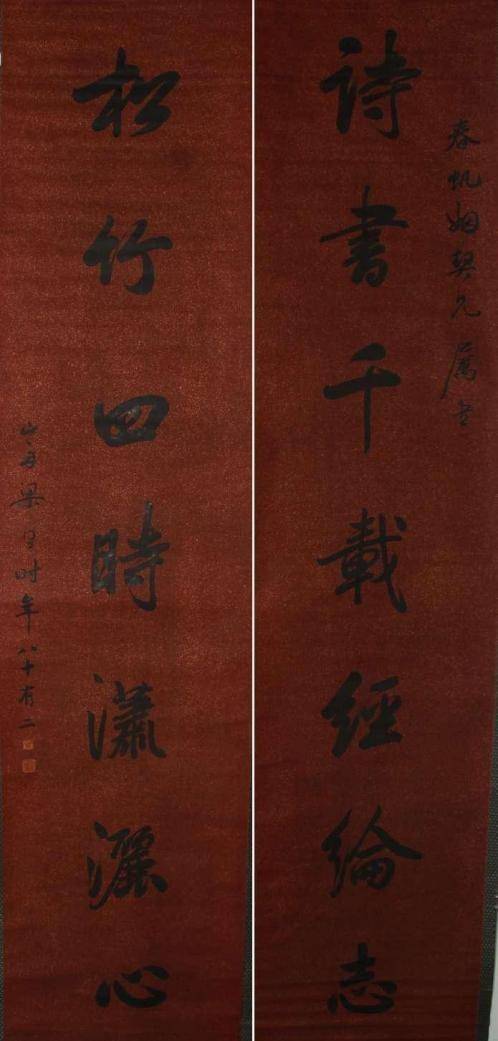 春帆姻契兄属书
詩書千載經綸志
松竹四時瀟灑心
山舟梁同書時年八十有二